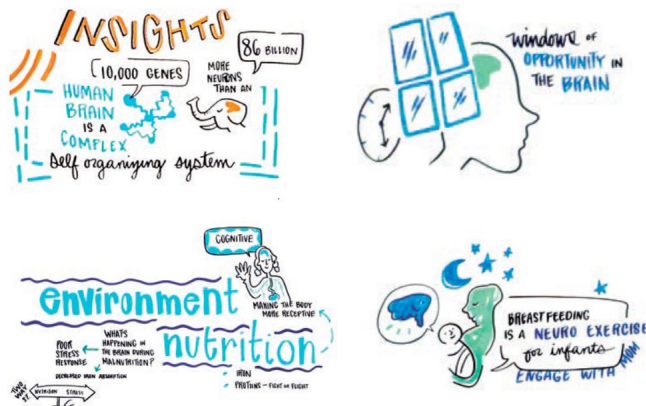 INSIGHTS
10,000 GENES
86 BILLION
MORE
NEURONS
THAN AN
HUMAN
BRAIN
IS A
COMPLEX
self organizing system
windows OF
OPPORTUNITY IN
THE BRAIN
COGNITIVE
environment
MAKING THE BODY
MORE RECEPTIVE
nutrition
WHAT'S
HAPPENING IN
THE BRAIN DURING
MALNUTRITION?
POOR
STRESS
RESPONSE
DECREASED IRON ABSORPTION
IRON
PROTEINS – FIGHT OR FLIGHT
TWO
WAY
ST
NUTRITION STRESS
BREASTFEEDING
IS A NEURO EXERCISE
for infants
ENGAGE WITH MOM